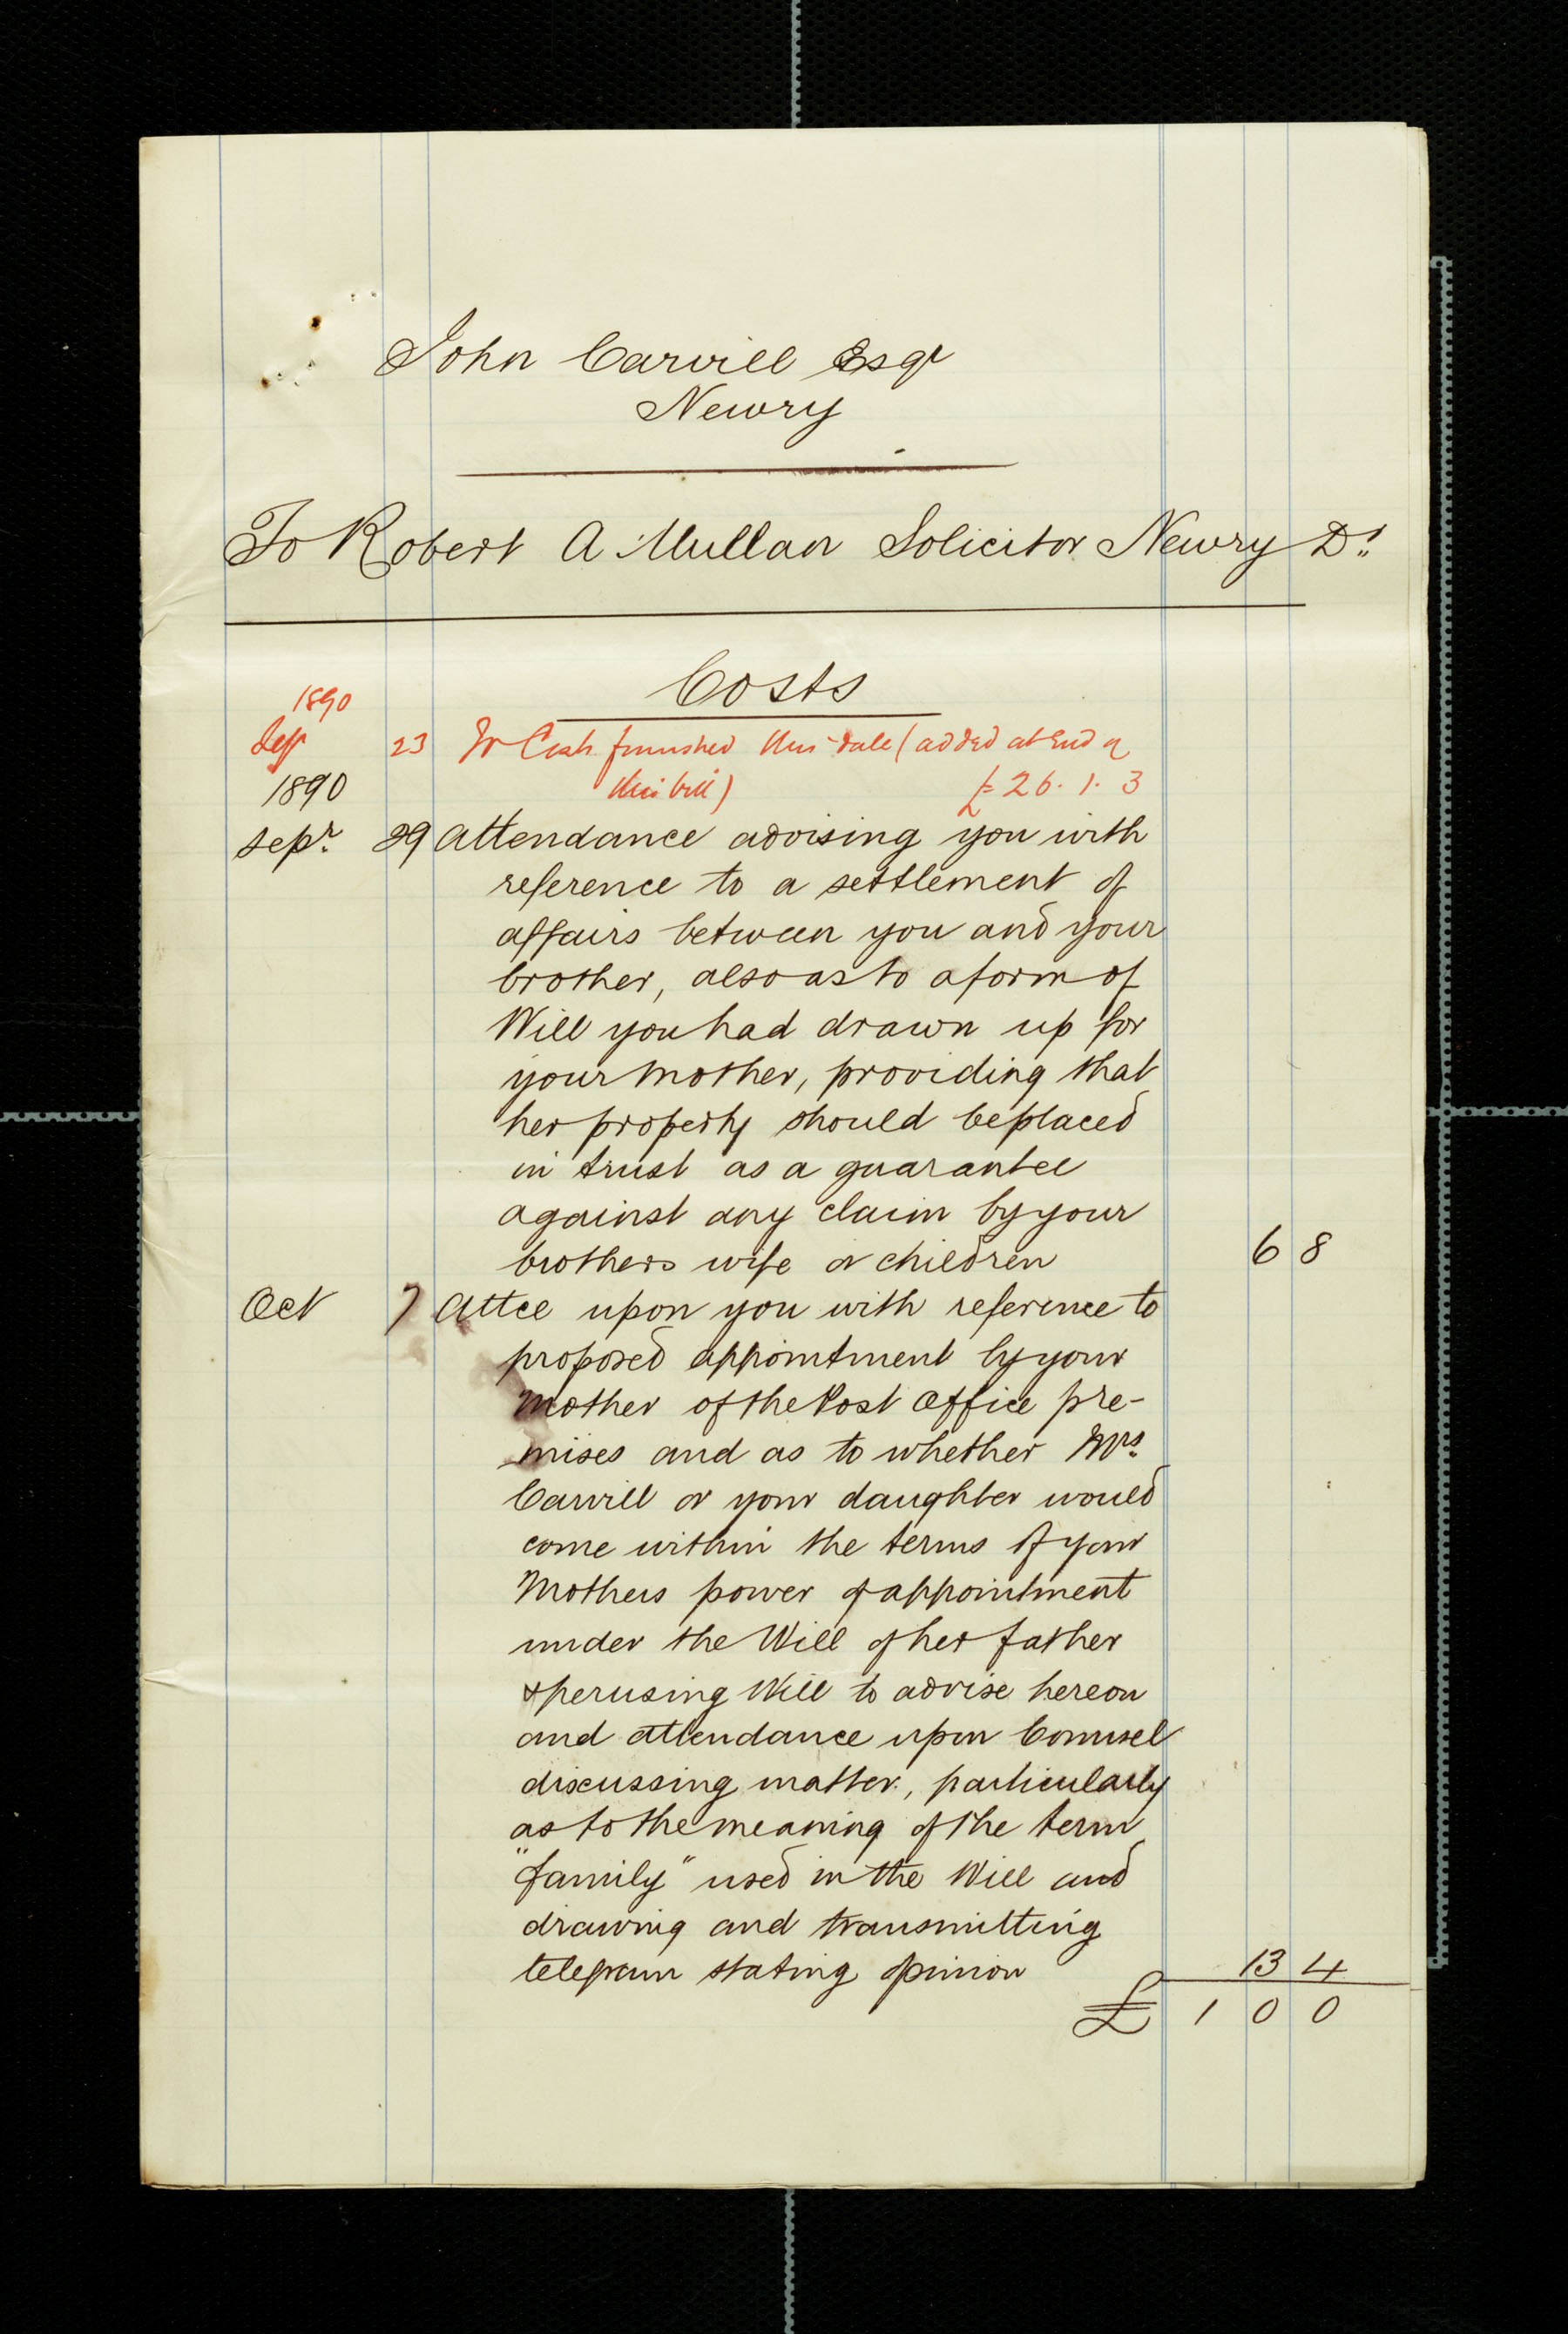 John Carvill Esqr
Newry
To Robert A Mullan Solicitor Newry Dr.
Costs
1890
Sep 23 To Cash furnished this date (added at End of
this bill) £26. 1. 3
1890
Sepr. 29 Attendance advising you with
reference to a settlement of
affairs between you and your
brother, also as to a form of
Will you had drawn up for
your mother, providing that
her property should be placed
in trust as a guarantee
against any claim by your
brothers wife or children 6 8
Oct 7 Attce upon you with reference to
proposed appointment by your
Mother of the Post Office pre-
mises and as to whether Mrs.
Carvill or your daughter would
come within the terms of your
Mothers power of appointment
under the Will of her father
& perusing Will to advise hereon
and attendance upon Counsel
discussing matter, particularly
as to the meaning of the term
"family" used in the Will and
drawing and transmitting
telegram stating opinion 13 4
£ 1 0 0